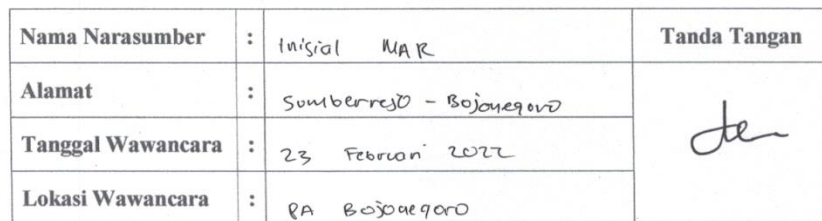 Nama Narasumber : Inisial MAR Tanda Tangan
Alamat : Sumberrejo - Bojonegoro
Tanggal Wawancara : 23 Februari 2022
Lokasi Wawancara : PA Bojonegoro